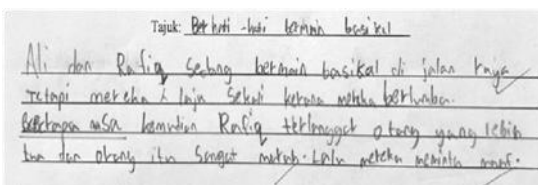 Tajuk: Berhati-hati bermain basikal
Ali dan Rafiq sedang bermain basikal di jalan raya
Tetapi mereka laju sekali kerana mereka berlumba.
Beberapa masa kemudian Rafiq terlanggar orang yang lebih
tua dan orang itu sangat marah. Lalu mereka meminta maaf.